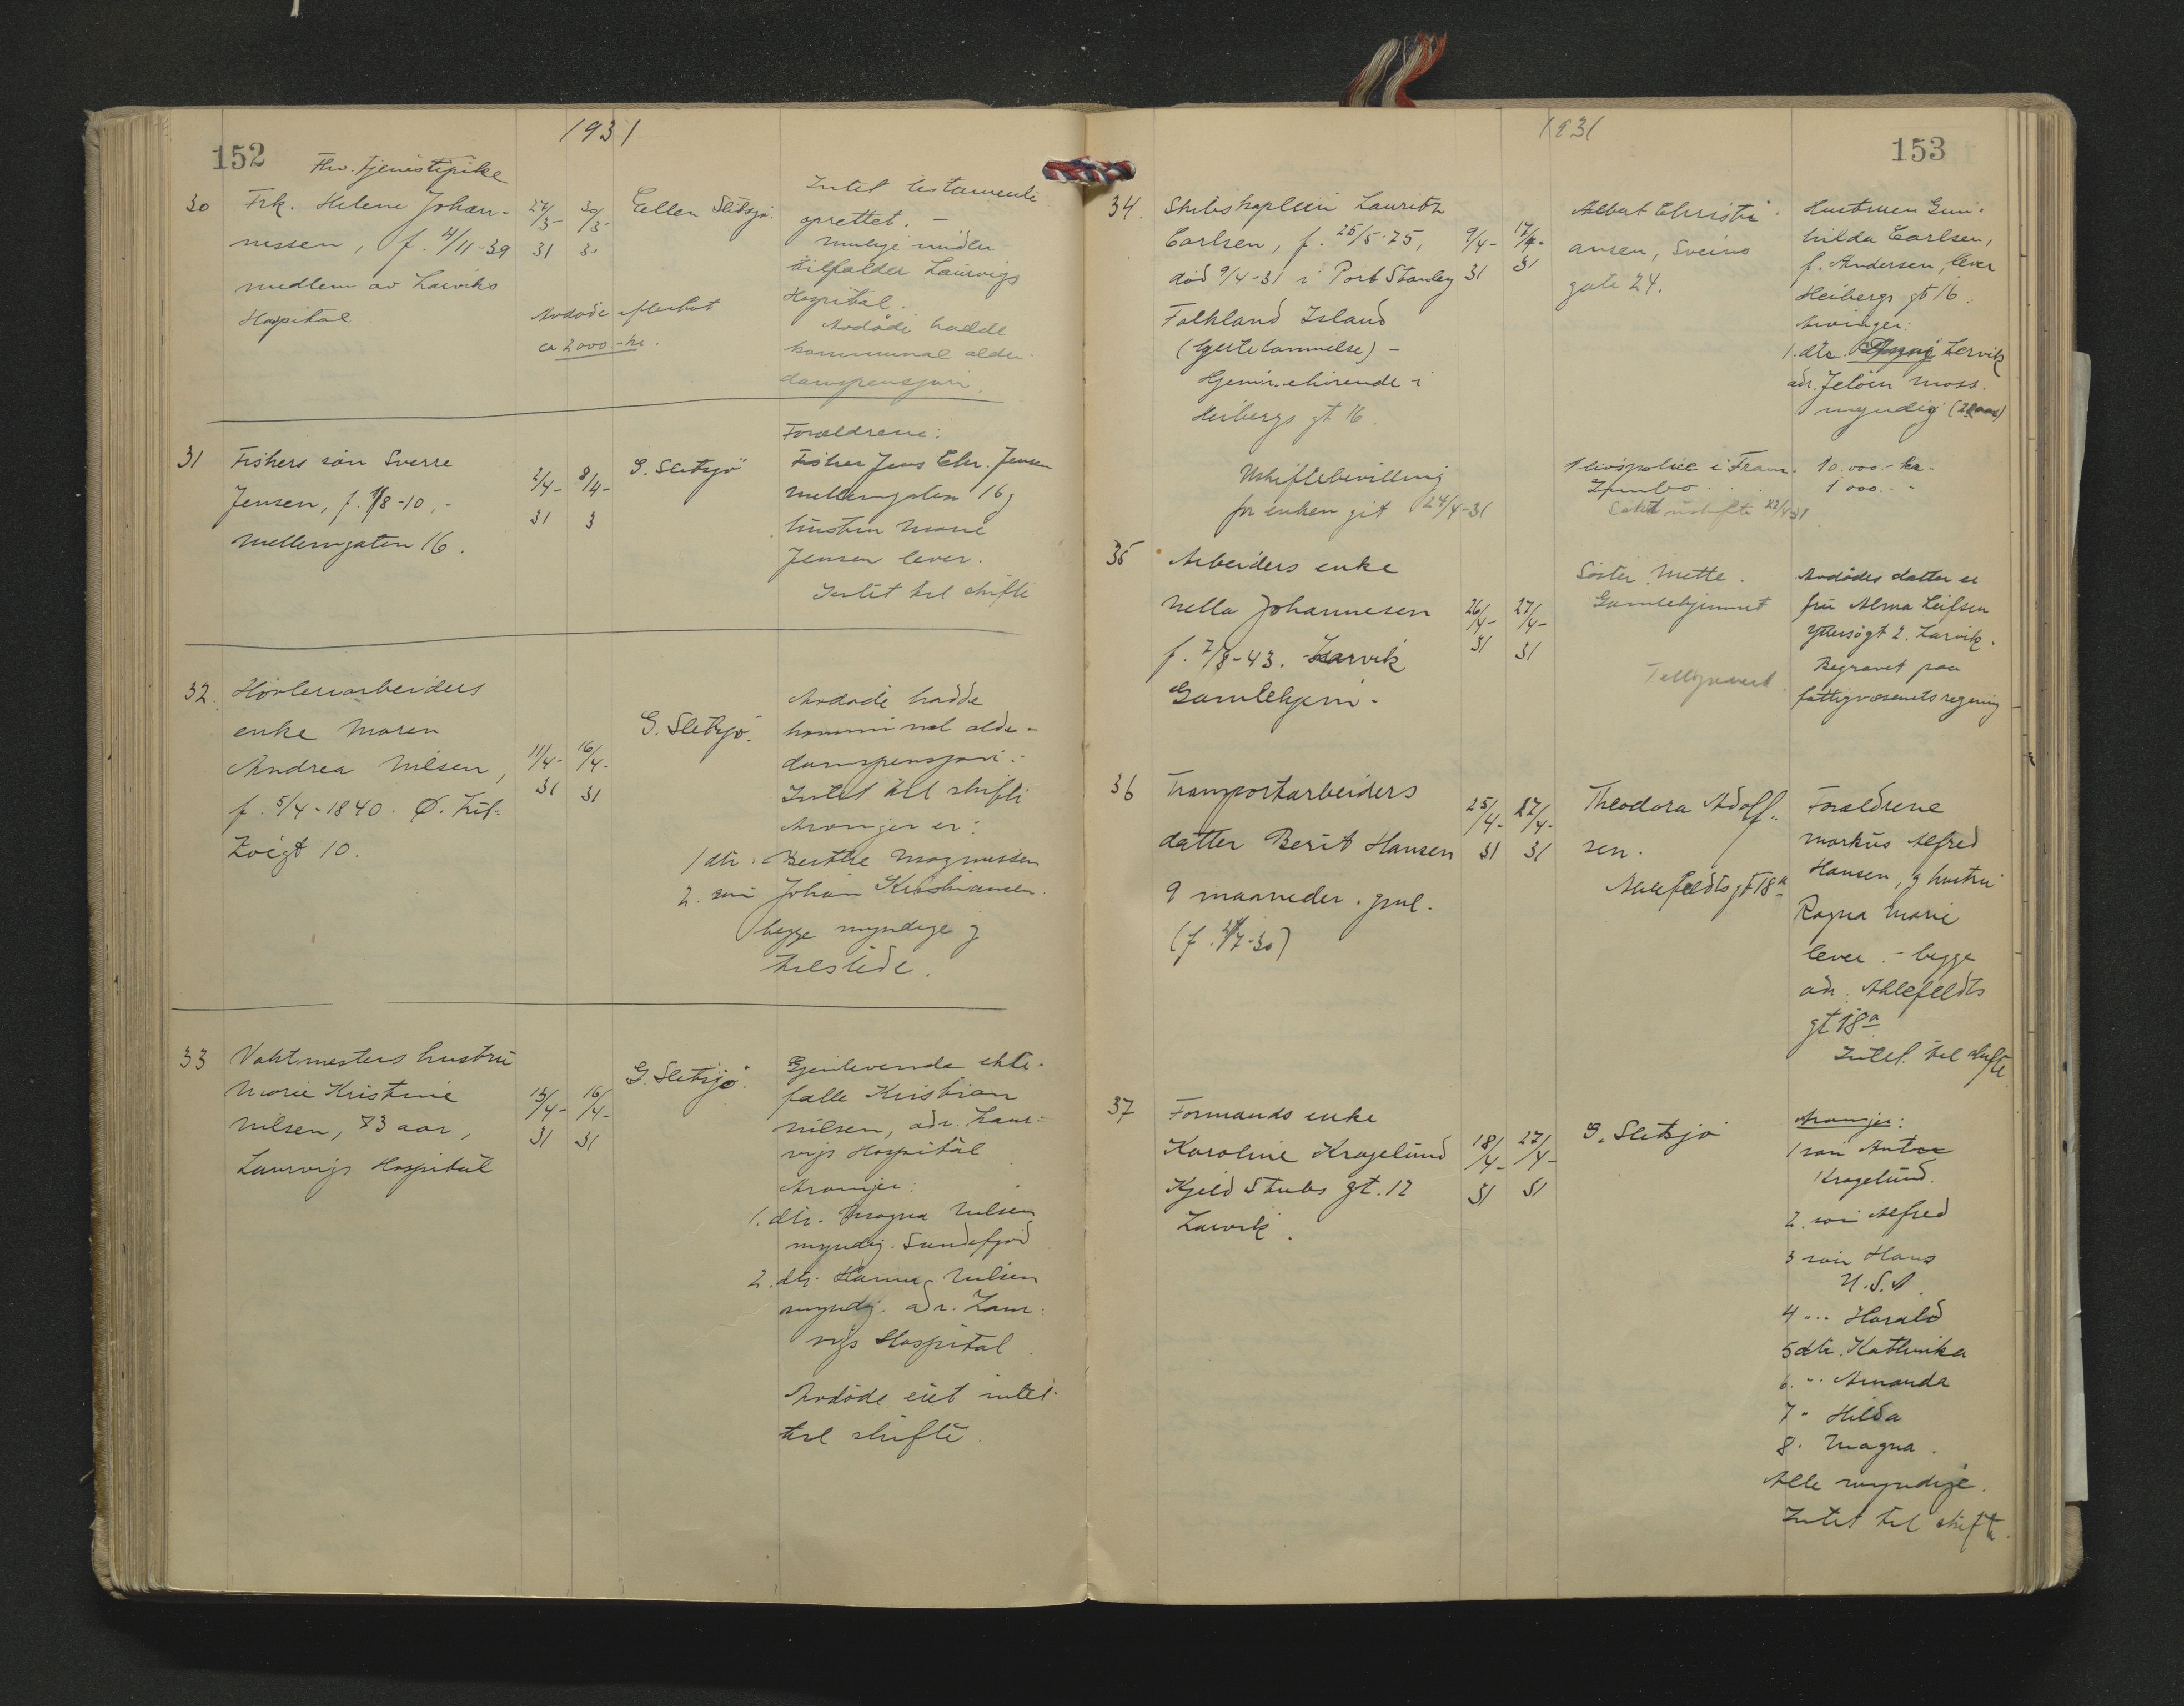 152
1931
30
Fhv. tjenestepike
Frk. Helene Johan-
nessen, f. 4/11-39
medlem av Larviks
Hospital
27/3-
31
30/3-
3
Ellen Sletsjø.
Avdøde efterlot
ca 2000.- kr.
Intet testamente
oprettet. -
Mulige midler
tilfalder Laurvigs
Hospital.
Avdøde hadde
kommunal alder-
domspensjon.
31
Fiskers søn Sverre
Jensen, f. /8-10,-
Mellemgaten 16.
2/4-
31
8/4-
3
G. Sletsjø
Forældrene:
Fisker Jens Chr. Jensen
Mellemgaten 16 g
hustru Marie
Jensen lever.
Intet til skifte
32.
Høvleriarbeiders
enke Maren
Andrea Nilsen,
f. 5/4-1840. Ø.
10.
11/4-
31
16/4-
31
G. Sletsjø.
Avdøde hadde
kommunal alder-
domspensjon.-
Intet til skifte
Arvinger er:
1 dtr. Berthe Magnussen
2. søn Johan Kristiansen.
begge myndige g
tilstede.
33
Vaktmesters hustru
Marie Kristine
Nilsen, 73 aar,
Laurvigs Hospital
13/4-
31
16/4-
31
G. Sletsjø.
Gjenlevende ekte-
felle Kristian
Nilsen, adr. Laur-
vigs Hospital
Arvinger:
1. dtr. Magna Nilsen
myndig. Sandefjord
2. dtr. Hanna Nilsen
myndig. adr. Laur-
vigs Hospital.
Avdøde eiet intet
til skifte.
1931
153
34.
Skibskaptein Lauritz
Carlsen, f. 25/5-75,
død 9/4-31 i Port Stanley
Falkland Island
(hjertelammelse) -
Hjemmehørende i
Heibergs gt 16.
9/4-
31
17/4-
31
Albert Christi-
ansen, Sveins
gate 24.
Hustruen Gun-
hilda Carlsen,
f. Andersen, lever
Heibergs gt 16.
Arvinger:
1. dtr. Lervik
adr. Jeløen Moss.
myndig
Uskiftebevilling
for enken git 24/4-31
1 livspolice i Fram. 10.000.- kr-
Innbo. 1 000.- "
Søkt uskifte 22/4 31
35
Arbeiders enke
Nella Johannesen
f. 7/8-43. Larvik
Gamlehjem-
26/4-
31
27/4-
31
Søster Mette.
Gamlehjemmet
Avdødes datter er
fru Alma Leifsen
gt 2. Larvik.
Begravet paa
fattigvæsenets regning
36
Transportarbeiders
datter Berit Hansen
9 maaneder gml.
(f. /7-30)
25/4-
31
27/4-
31
Theodora Adolf-
sen.
Ahlefeldtsgt 18a
Forældrene
Markus Alfred
Hansen, g hustru
Ragna Marie
lever. - begge
adr. Ahlefeldts
gt 18a
Intet til skifte
37
Formands enke
Karoline Kragelund
Kjeld Stubs gt. 12
Larvik.
18/4-
31
27/4-
31
G. Sletsjø
Arvinger:
1 søn Anton
Kragelund.
2. søn Alfred
3 søn Hans
U.S.A.
4 ... Harald
5 dtr. Kathinka
6. " Amanda
7 " Hilda
8. Magna.
Alle myndige.
Intet til skifte.